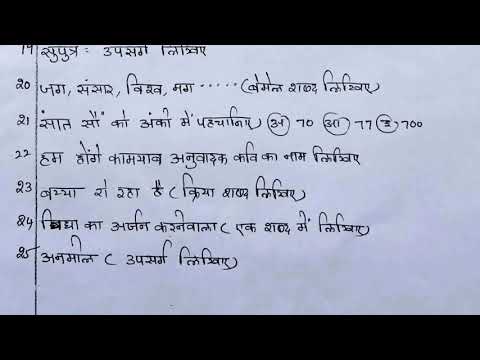 19 सुपुत्र : उपसर्ग लिखिए
20 जग, संसार, विश्व, मग ..... (बेमेल शब्द लिखिए)
21 सात सौ को अंको में पहचानिए) अ 70 आ 77 इ 700
22 हम होंगे कामयाब अनुवादक कवि का नाम लिखिए
23 बच्चा रो रहा है ( क्रिया शब्द लिखिए)
24 विद्या का अर्जन करनेवाला ( एक शब्द में लिखिए)
25 अनमोल ( उपसर्ग लिखिए)